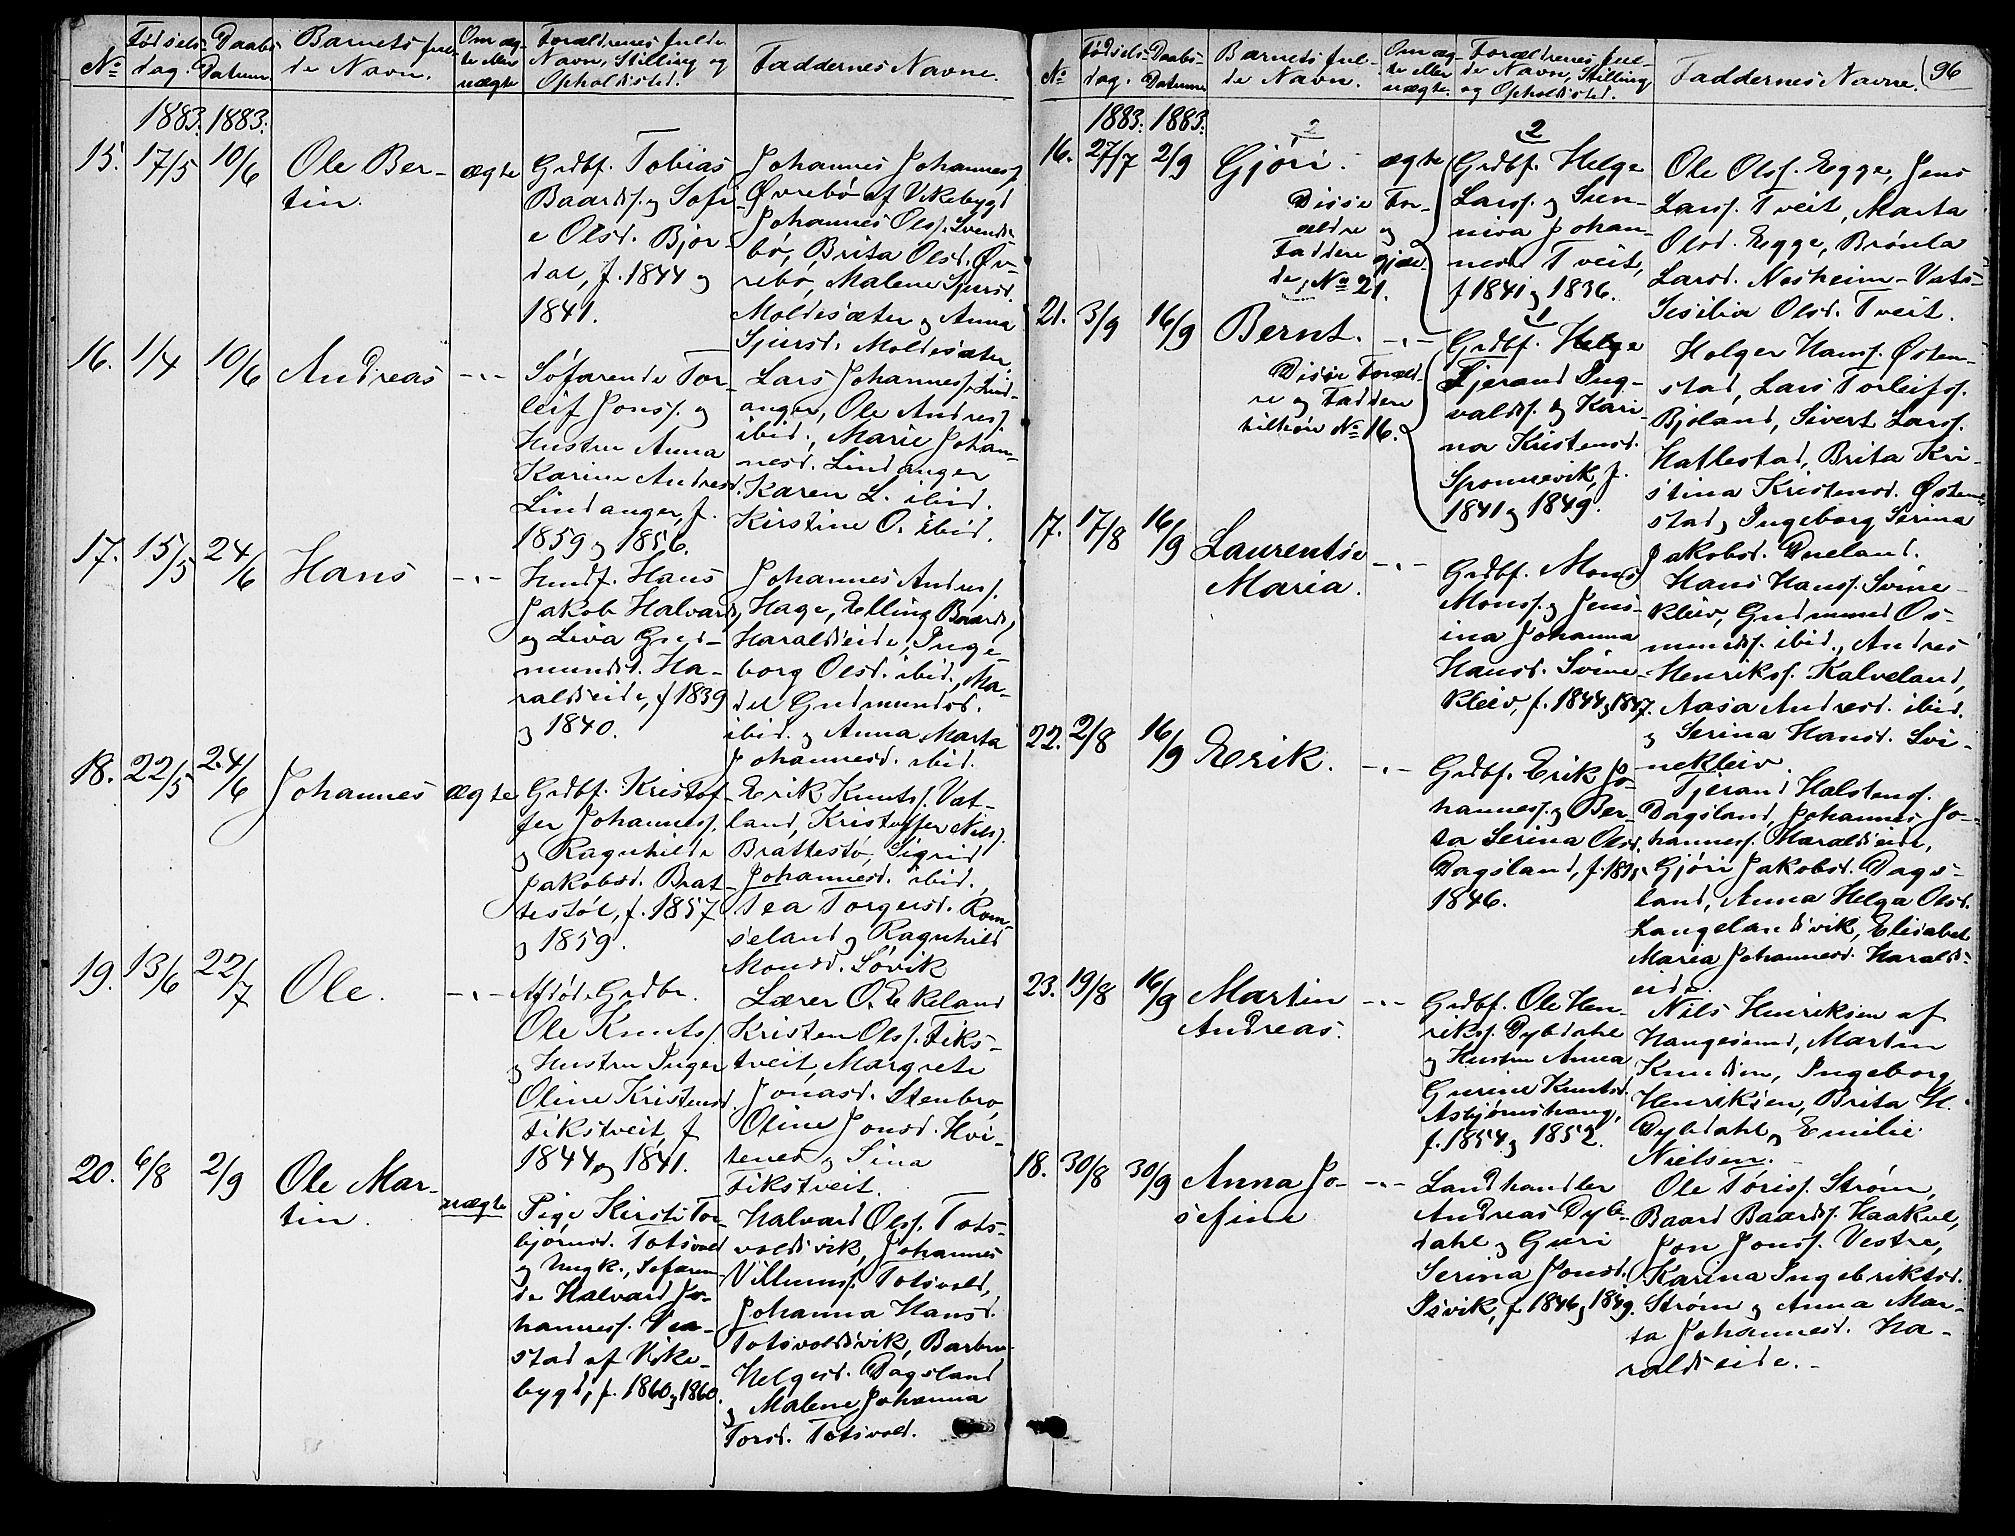 No
Fødsels-
dag.
Daabs-
Datum.
Barnets ful-
de Navn.
Om æg-
te eller
uægte
Forældrenes fulde
Navn, Stilling og
Opholdssted.
Faddernes Navne.
1883. 1883.
15. 17/5 10/6
Ole Ber-
tin.
ægte
Grdbf. Tobias
Baards. og Sofi-
e Olsd. Bjor-
dal, f. 1844 og
1841.
Johannes Johanness.
Øvrebø af Vikebygd
Johannes Olss. Svends-
bø, Brita Olsd. Øv-
rebø, Malene Sjursd.
Moldesæter og Anna
Sjursd. Moldesæter.
16. 1/4 10/6
Andreas
-"-
Søfarende Tor-
leif Jonss. og
Hustru Anna
Karine Andresd.
Lindanger, f.
1859 og 1856.
Lars Johanness. Lind-
anger, Ole Andress.
ibid., Marie Johan-
nesd. Lindanger
Karen L. ibid.
Kirstine O. ibid.
17. 15/5 24/6
Hans
-"-
Husf. Hans
Jakob Halvards.
og Siva Gud-
mundsd. Ha-
raldseide, f. 1839
og 1840.
Johannes Andress.
Hage, Elling Baards.,
Haraldseide, Inge-
borg Olsd. ibid., Ma-
del Gudmundsd.
ibid. og Anna Marta
Johannesd. ibid.
18. 22/5 24/6
Johannes
ægte
Grdbf. Kristof-
fer Johanness.
og Ragnhilde
Jakobsd. Brat-
testøl, f. 1857
og 1859.
Erik Knuts. Vat-
land, Kristoffer Nilss.
Brattestø, Sigrid
Johannesd. ibid.,
Tea Torgersd. Rom-
seland og Ragnhild
Monsd. Søvik
19. 13/6 22/7
Ole.
-"-
Afdøde Grdbr.
Ole Knuts.
og Hustru Inger
Oline Kristensd.
Fikstveit, f.
1844 og 1841.
Lærer O. Ekeland
Kristen Olss. Fiks-
tveit, Margrete
Jonasd. Stenbro,
Oline Jonsd. Hvi-
tenes og Sina
Fikstveit.
20. 6/8 2/9
Ole Mar-
tin.
uægte
Pige Kirsti Tor-
bjørnsd. Totsvold
og Ungk., Søfaren-
de Halvard Jo-
hanness.
stad af Vike-
bygd, f. 1860 og 1860.
Halvard Olss. Tots-
voldsvik, Johannes
Villumss. Totsvold,
Johanna Hansd.
Totsvoldsvik, Barbro
Helgesd. Dagsland
og Malene Johanna
Torsd. Totsvold.
96
No
Fødsels-
dag.
Daabs-
Datum
Barnets ful-
de Navn.
Om æg-
te eller
uægte.
Forældrenes ful-
de Navn, Stilling
og Opholdssted.
Faddernes Navne.
1883. 1883.
16. 27/7 2/9
2
Gjøri.
ægte
Disse For-
ældre og
Faddere gjæl-
de No 21.
2
Grdbf. Helge
Larss. og Sun-
niva Johan-
nesd. Tveit,
f. 1841 og 1836.
Ole Olss. Egge, Jens
Larss. Tveit, Marta
Olsd. Egge, Brønla
Larsd. Nesheim-Vats-
Sesilia Olsd. Tveit.
21. 3/9 16/9
Bernt.
-"-
Disse Foræld-
re og Faddere
tilhøre No 16.
1
Grdbf. Helge
Tjerand Ing-
valds. og Kari-
na Kristensd.
Sponnevik, f.
1841 og 1849.
Holger Hanss. Østen-
stad, Lars Torleifss.
Bjoland, Sivert Larss.
Hattestad, Brita Kri-
stina Kristensd. Østen-
stad, Ingeborg Serina
Jakobsd. Dueland.
17. 17/8 16/9
Laurentse
Maria.
-"-
Grdbf. Mons
Monss. og Jens-
ina Johanna
Hansd. Svine-
kleiv, f. 1844 og 1847.
Hans Hanss. Svine-
kleiv, Gudmund Os-
munds. ibid., Andres
Henrikss. Kalveland,
Aasa Andresd. ibid.
og Serina Hansd. Svi-
nekleiv.
22. 2/8 16/9
Erik.
-"-
Grdbf. Erik Jo-
hanness. og Ber-
ta Serina Olsd.
Dagsland, f. 1845
1846.
Tjerand Halstens.
Dagsland, Johannes Jo-
hanness. Haraldseide,
Gjøri Jakobsd. Dags-
land, Anna Helga Olsd.
Langelandsvik, Elisabet
Maria Johannesd. Haralds-
eide.
23. 19/8 16/9
Martin
Andreas.
-"-
Grdbf. Ole Hen-
rikss. Dybdahl
og Hustru Anna
Gurine Knutsd.
Asbjørnshaug,
f. 1854 og 1852.
Nils Henriksen af
Haugesund, Martin
Knudsen, Ingeborg
Henriksen, Brita H.
Dybdahl, Emilie
Nielsen.
18. 30/8 30/9
Anna Jo-
sefine
-"-
Landhandler
Andreas Dyb-
dahl og Guri
Serina Jonsd.
Isvik, f. 1846 og 1849.
Ole Toriss. Strøm,
Baard Baards. Haakul,
Jon Jonss. Vestre,
Karina Ingebriktsd.
Strøm og Anna Mar-
ta Johannesd. Ha-
raldseide.